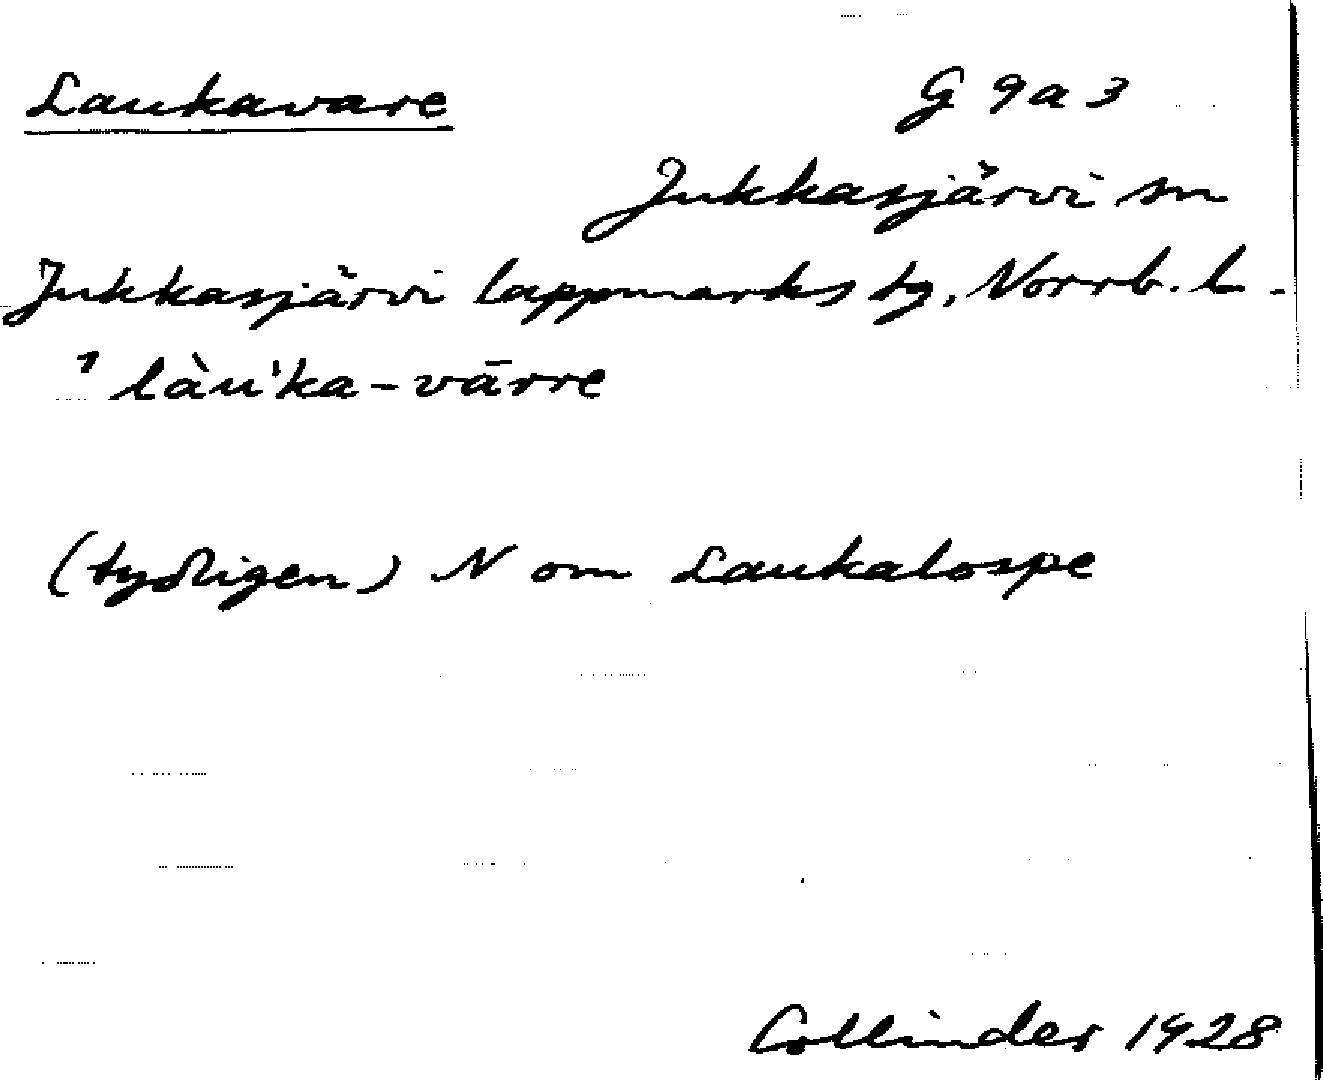 Laukavare G 9 a 3
Jukkasjärvi sn
Jukkasjärvi lappmarks tg, Norrb. l.
¹ làuˈka-vārre
(tydligen) N om Laukalospe
Collinder 1928